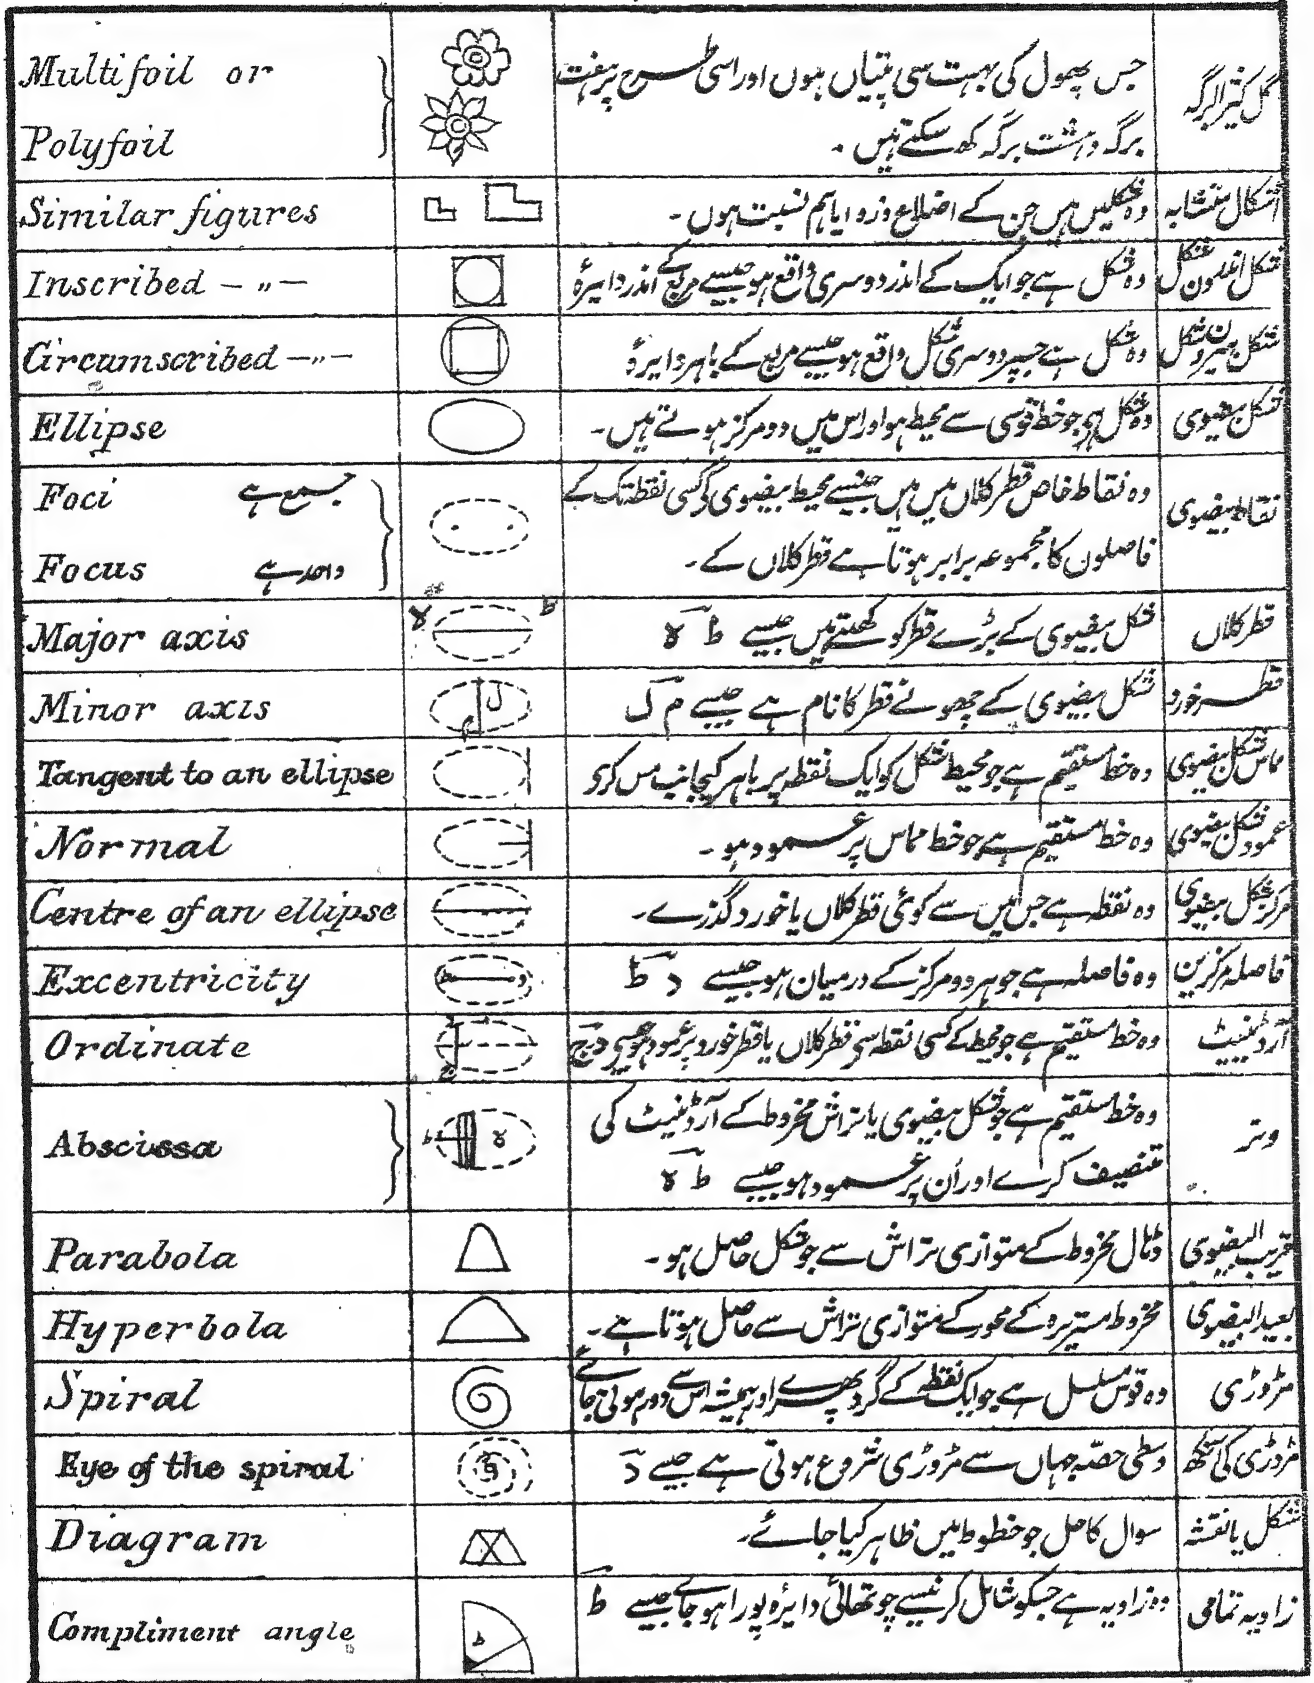 Multifoil or
جس پھول کی بہت سی پتیاں ہوں اور اسی طرح پر ہفت
گل کثیر البرگہ
Polyfoil
برگہ و ہشت برگہ کھ سکتے ہیں ۔
Similar figures
وہ شکلیں ہیں جن کے اضلاع و زوایا ہم نسبت ہوں ۔
اشکال متشابہ
Inscribed – „ –
وہ شکل ہے جو ایک کے اندر دوسری واقع ہو جیسے مربع کے اندر دایرۂ
شکل اندرون شکل
Circumscribed – „ –
وہ شکل ہے جسپر دوسری شکل واقع ہو جیسے مربع کے باہر دایرۂ
شکل بیرون شکل
Ellipse
وہ شکل ہے جو خط قوسی سے محیط ہو اور اس میں دو مرکز ہوتے ہیں ۔
شکل بیضوی
Foci جمع ہے
وہ نقاط خاص قطر کلاں میں ہیں جنسے محیط بیضوی کی کسی نقطہ تک کے
نقاط بیضوی
Focus واحد ہے
فاصلون کا مجموعہ برابر ہوتا ہے قطر کلاں کے ۔
Major axis
ط
شکل بیضوی کے بڑے قطر کو کھتے ہیں جیسے ط ۃ
قطر کلاں
Minor axis
م ل
شکل بیضوی کے چھوٹے قطر کا نام ہے جیسے م ل
قطر خورد
Tangent to an ellipse
وہ خط مستقیم ہے جو محیط شکل کو ایک نقطہ پر باہر کیجانب مس کری
مماس شکل بیضوی
Normal
وہ خط مستقیم ہے جو خط مماس پر عمود ہو ۔
عمود شکل بیضوی
Centre of an ellipse
وہ نقطہ ہے جس میں سے کوئی قطر کلاں یا خورد گذرے ۔
مرکز شکل بیضوی
Excentricity
وہ فاصلہ ہے جو ہر دو مرکز کے درمیان ہو جیسے د ط
فاصلہ مرکزین
Ordinate
وہ خط مستقیم ہے جو محیط کے کسی نقطہ سے قطر کلاں یا قطر خورد پر عمود ہو جیسے د ج
آرڈینیٹ
Abscissa
وہ خط مستقیم ہے جو شکل بیضوی یا تراش مخروط کے آرڈینیٹ کی
وتر
تنصیف کرے اور اُن پر عمود ہو جیسے ط ۃ
Parabola
ڈہال مخروط کے متوازی تراش سے جو شکل حاصل ہو ۔
قریب البیضوی
Hyperbola
مخروط مستدیرہ کے محور کے متوازی تراش سے حاصل ہوتا ہے ۔
بعید البیضوی
Spiral
وہ قوس مسلسل ہے جو ایک نقطہ کے گرد پھرے اور ہمیشہ اس سے دور ہوتی جائے
مڑوڑی
Eye of the spiral
وسطی حصّہ جہاں سے مڑوڑی شروع ہوتی ہے جیسے د
مڑوڑی کی آنکھ
Diagram
سوال کا حل جو خطوط میں ظاہر کیا جائے ۔
شکل یا نقشہ
Compliment angle
ط
وہ زاویہ ہے جسکو شامل کرنیسے چوتھائی دایرہ پورا ہو جاے جیسے ط
زاویہ تمامی